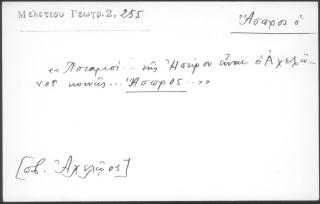 Μελετίου Γεωγρ. 2, 255
Ἄσπρος ὁ
«Ποταμοὶ... τῆς Ἠπείρου εἶναι ὁ Ἀχελῷ-
νος κοινῶς... Ἄσπρος...»
[πβ. Ἀχελῷος]